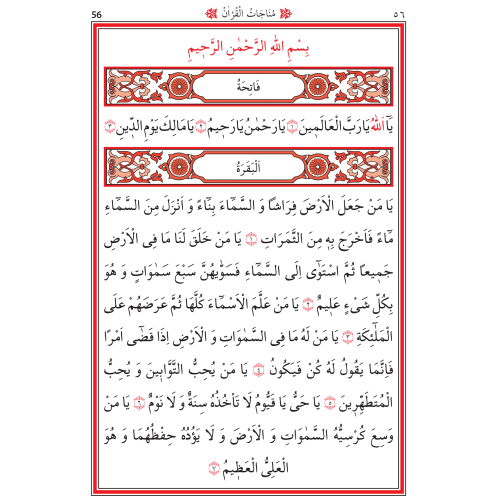 56 مُنَاجَاتُ الْقُرْاٰنْ ٥٦
بِسْمِ اللّٰهِ الرَّحْمٰنِ الرَّحٖيمِ
فَاتِحَةُ
يَٓا اَللّٰهُ يَا رَبَّ الْعَالَمٖينَ ١ يَا رَحْمٰنُ يَا رَحٖيمُ ٢ يَا مَالِكَ يَوْمِ الدّٖينِ ٣
اَلْبَقَرَةُ
يَا مَنْ جَعَلَ الْاَرْضَ فِرَاشًا وَ السَّمَٓاءَ بِنَٓاءً وَ اَنْزَلَ مِنَ السَّمَٓاءِ
مَٓاءً فَاَخْرَجَ بِهٖ مِنَ الثَّمَرَاتِ ١ يَا مَنْ خَلَقَ لَنَا مَا فِى الْاَرْضِ
جَمٖيعًا ثُمَّ اسْتَوٰٓى اِلَى السَّمَٓاءِ فَسَوّٰيهُنَّ سَبْعَ سَمٰوَاتٍ وَ هُوَ
بِكُلِّ شَىْءٍ عَلٖيمٌ ٢ يَا مَنْ عَلَّمَ الْاَسْمَٓاءَ كُلَّهَا ثُمَّ عَرَضَهُمْ عَلَى
الْمَلٰٓئِكَةِ ٣ يَا مَنْ لَهُ مَا فِى السَّمٰوَاتِ وَ الْاَرْضِ اِذَا قَضٰٓى اَمْرًا
فَاِنَّمَا يَقُولُ لَهُ كُنْ فَيَكُونُ ٤ يَا مَنْ يُحِبُّ التَّوَّابٖينَ وَ يُحِبُّ
الْمُتَطَهِّرٖينَ ٥ يَا حَىُّ يَا قَيُّومُ لَا تَاْخُذُهُ سِنَةٌ وَ لَا نَوْمٌ ٦ يَا مَنْ
وَسِعَ كُرْسِيُّهُ السَّمٰوَاتِ وَ الْاَرْضَ وَ لَا يَؤُدُهُ حِفْظُهُمَا وَ هُوَ
الْعَلِىُّ الْعَظٖيمُ ٧